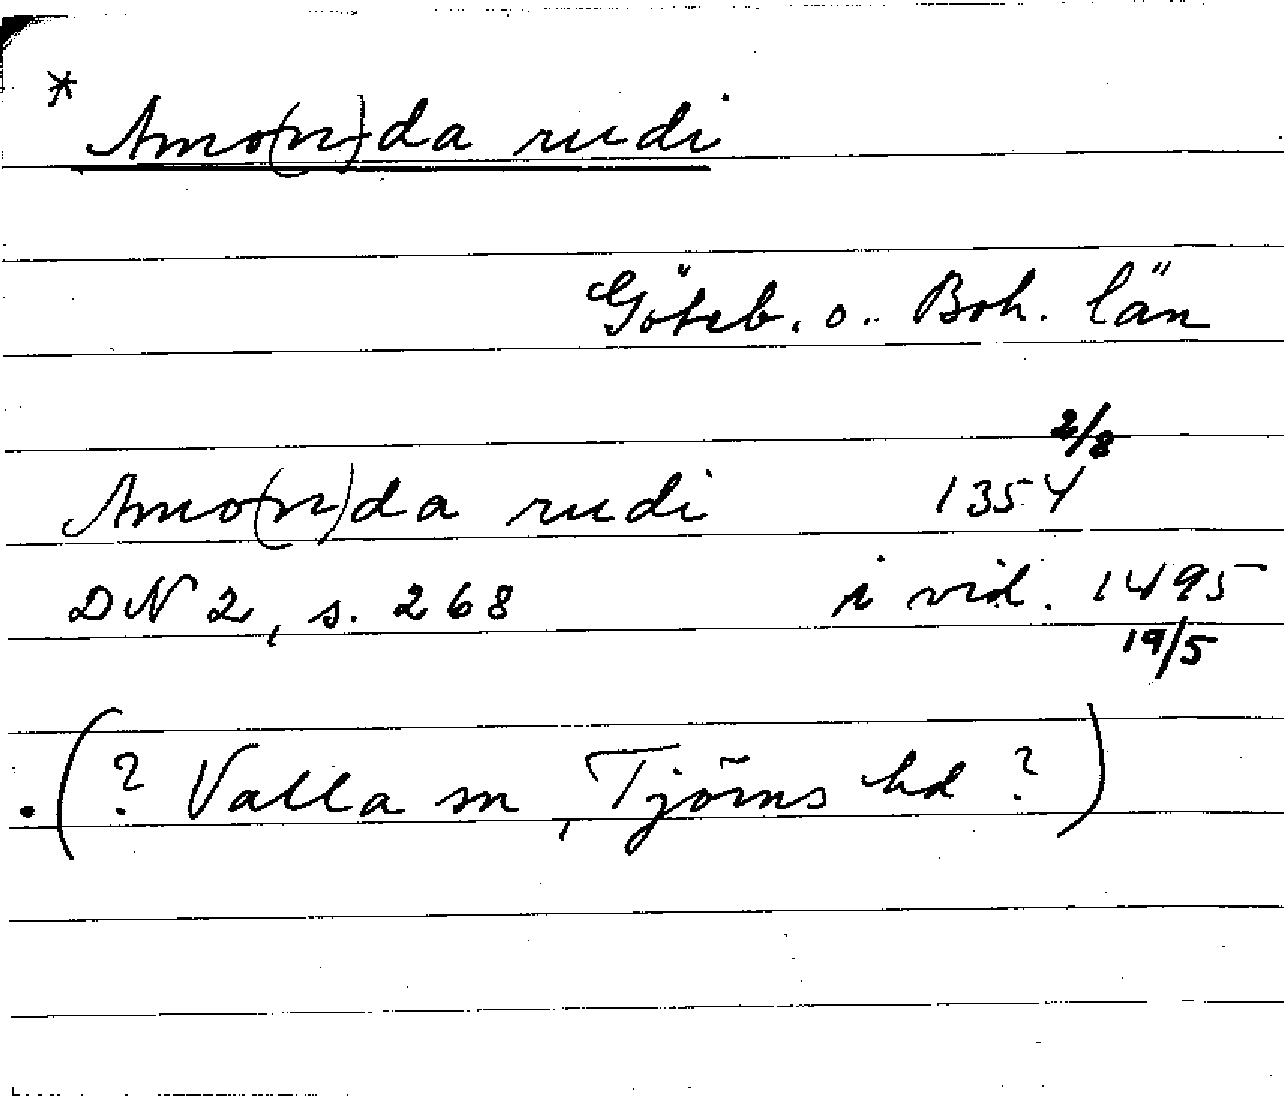 * Amo(n)da rudi
Göteb. o. Boh. län
2/8
Amo(n)da rudi 1354
DN 2, s. 268 i vid. 1495
19/5
(? Valla sn, Tjörns hd ?)